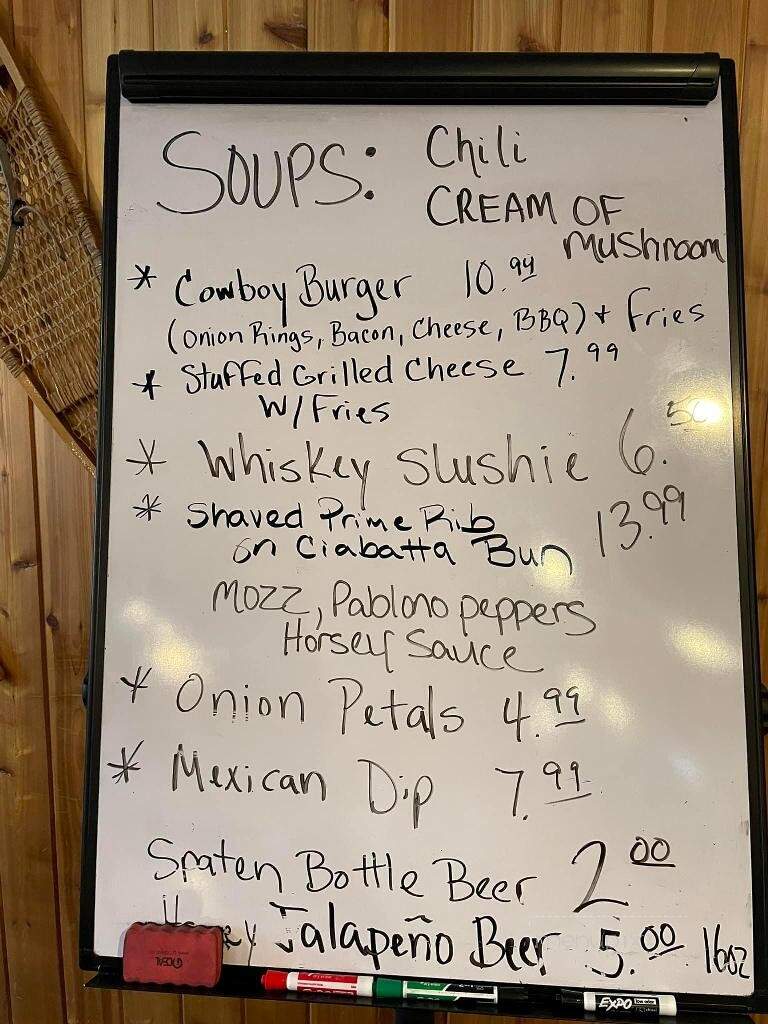 SOUPS: Chili
CREAM OF
Mushroom
* Cowboy Burger 10.99
(Onion Rings, Bacon, Cheese, BBQ) + Fries
* Stuffed Grilled Cheese 7.99
W/Fries
* Whiskey Slushie 6.50
* Shaved Prime Rib 13.99
on Ciabatta Bun
Mozz, Pablono peppers
Horsey Sauce
* Onion Petals 4.99
* Mexican Dip 7.99
Spaten Bottle Beer 2.00
Jalapeño Beer 5.00 16oz
EXPO